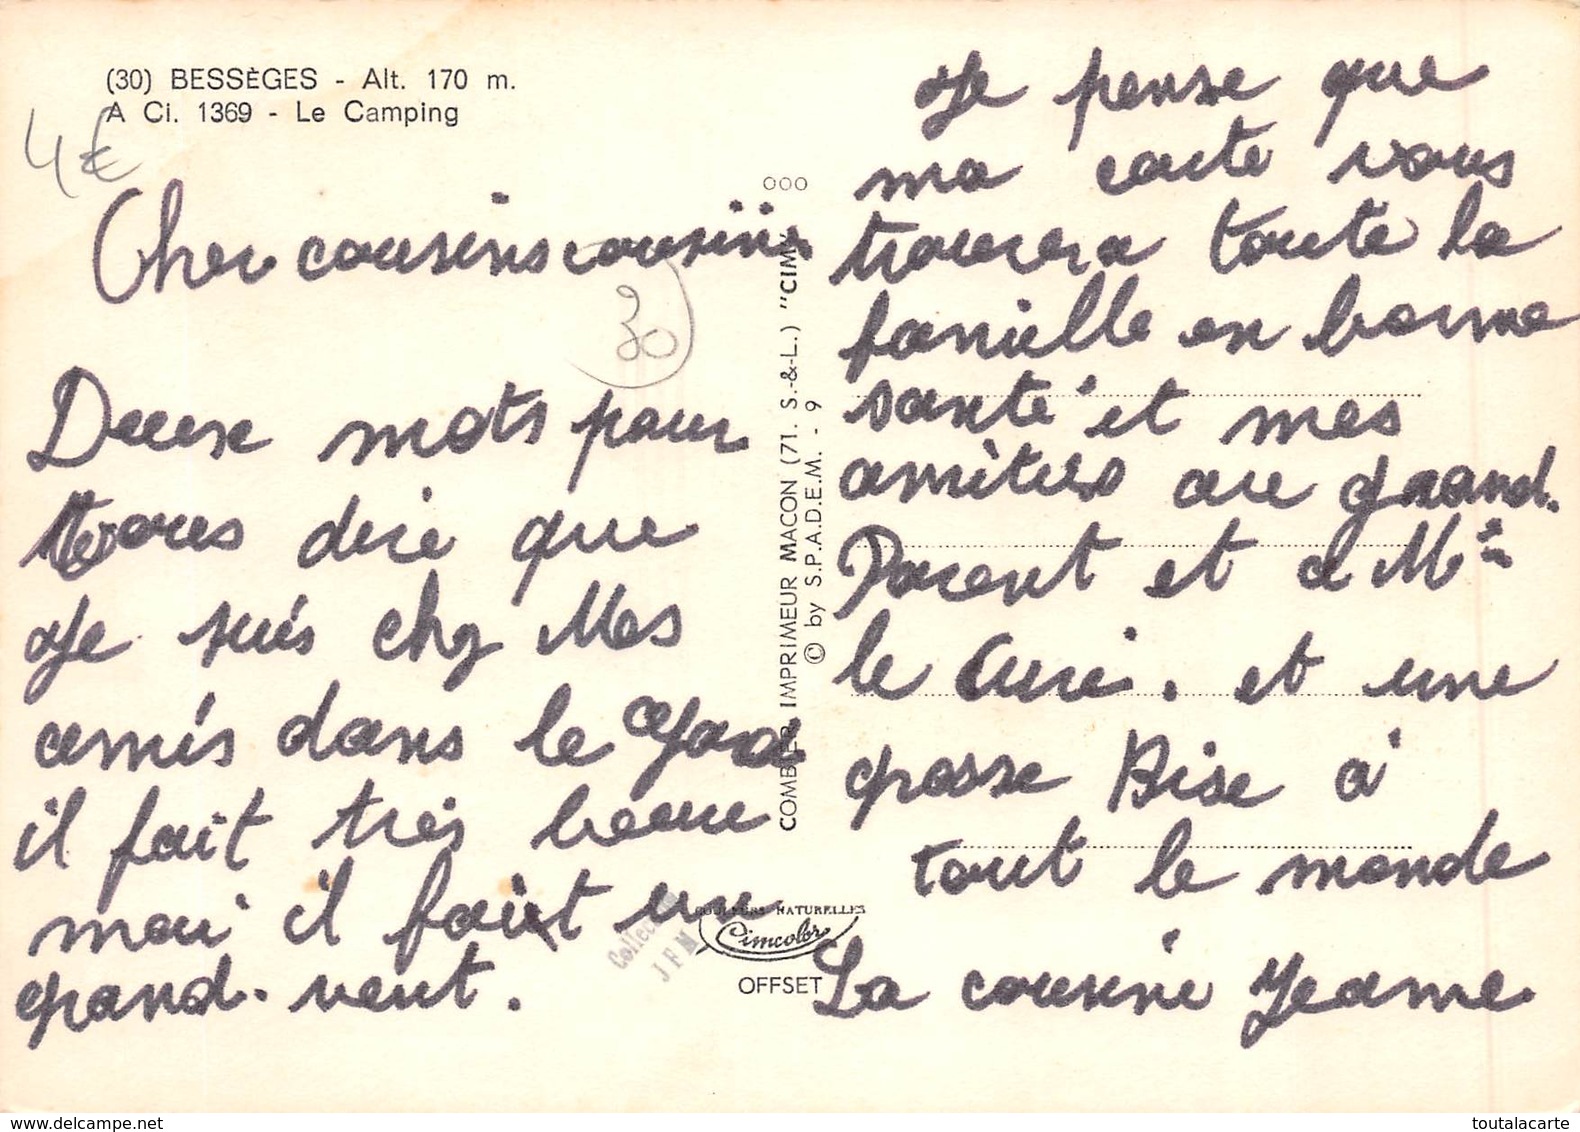 (30) BESSÈGES - Alt. 170 m.
A Ci. 1369 - Le Camping
4€
Cher cousins cousin
30
Deuse mots pour
vous dire que
Je suis chez Mes
amis dans le Gard
il fait très beau
mai il fait un
grand. vent.
OOO
COMBIER IMPRIMEUR MACON (71. S.-&-L.) "CIM"
© by S.P.A.D.E.M. - 9
Collection
JFM
COULEURS NATURELLES
Cimcolor
OFFSET
Je pense que
ma carte vous
trouvera toute la
famille en bonne
santé et mes
amitiés au grand.
Parent et a Mr
le Curé. et une
grosse Bise à
tout le monde
La cousine Jeanne.
toutalacarte